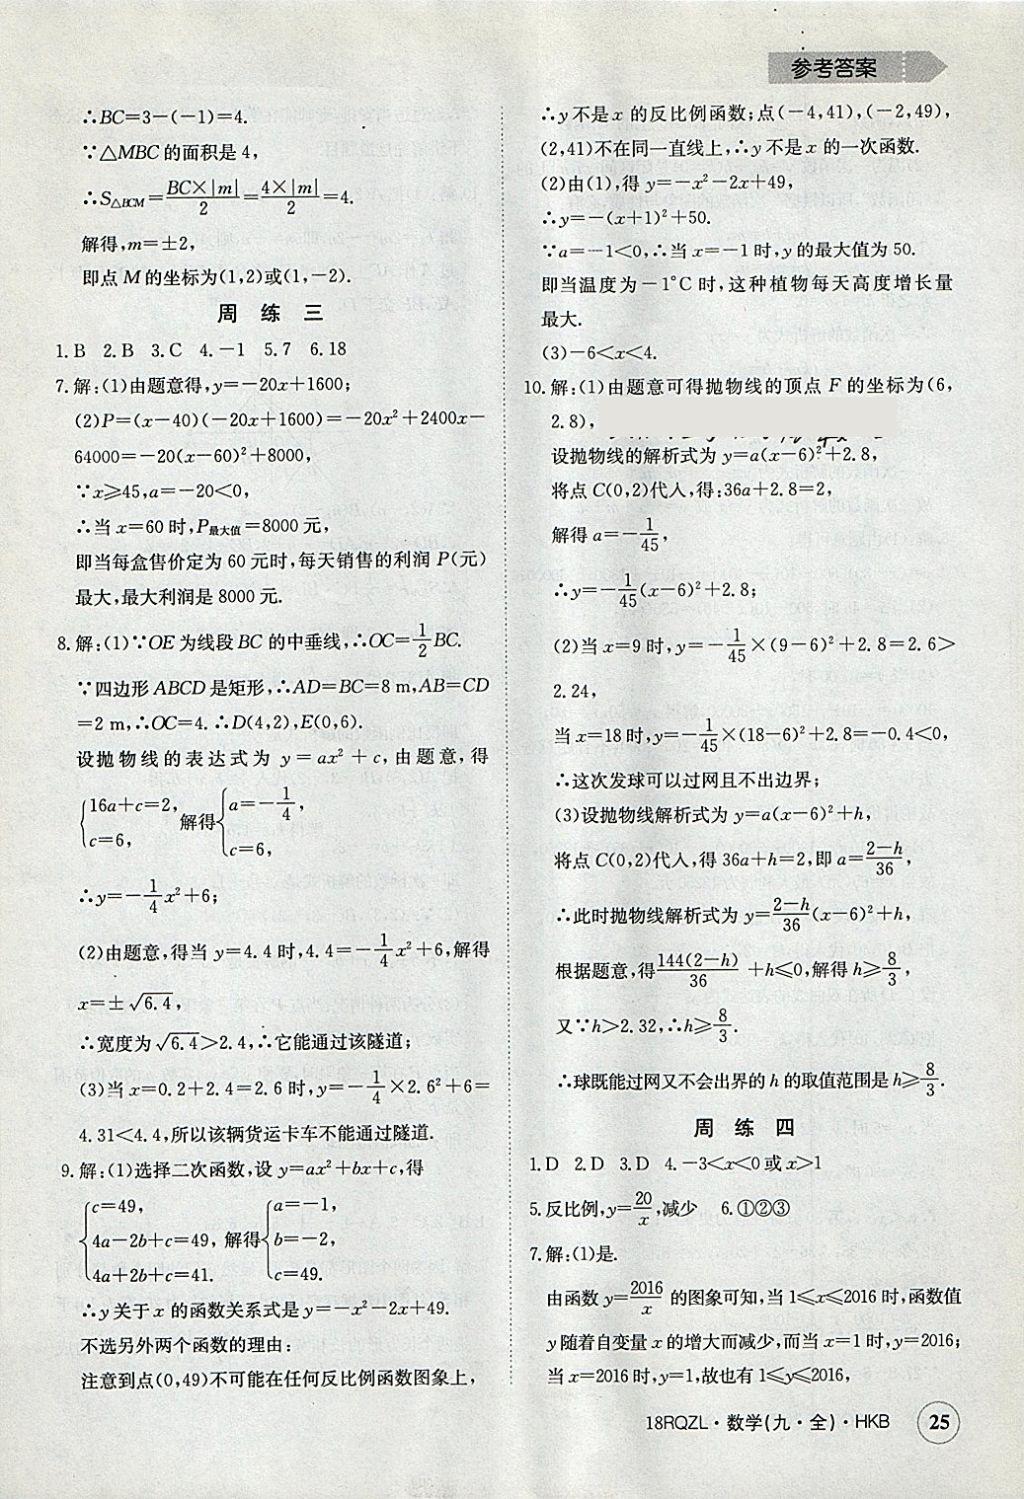 参考答案
∴BC=3-(-1)=4.
∵△MBC的面积是4，
∴S△BCM=BC×|m|/2=4×|m|/2=4.
解得,m=±2,
即点M的坐标为(1,2)或(1,-2).
周 练 三
1.B 2.B 3.C 4.-1 5.7 6.18
7.解:(1)由题意得,y=-20x+1600;
(2)P=(x-40)(-20x+1600)=-20x²+2400x-
64000=-20(x-60)²+8000,
∵x≥45,a=-20<0,
∴当x=60时,P最大值=8000元,
即当每盒售价定为60元时,每天销售的利润P(元)
最大,最大利润是8000元.
8.解:(1)∵OE为线段BC的中垂线,∴OC=1/2BC.
∵四边形ABCD是矩形,∴AD=BC=8 m,AB=CD
=2 m,∴OC=4.∴D(4,2),E(0,6).
设抛物线的表达式为y=ax²+c,由题意,得
{16a+c=2, c=6, 解得{a=-1/4, c=6,
∴y=-1/4x²+6;
(2)由题意,得当y=4.4时,4.4=-1/4x²+6,解得
x=±√6.4,
∴宽度为√6.4>2.4,∴它能通过该隧道;
(3)当x=0.2+2.4=2.6时,y=-1/4×2.6²+6=
4.31<4.4,所以该辆货运卡车不能通过隧道.
9.解:(1)选择二次函数,设y=ax²+bx+c,得
{c=49, 4a-2b+c=49, 4a+2b+c=41. 解得{a=-1, b=-2, c=49.
∴y关于x的函数关系式是y=-x²-2x+49.
不选另外两个函数的理由:
注意到点(0,49)不可能在任何反比例函数图象上,
∴y不是x的反比例函数;点(-4,41),(-2,49),
(2,41)不在同一直线上,∴y不是x的一次函数.
(2)由(1),得y=-x²-2x+49,
∴y=-(x+1)²+50.
∵a=-1<0,∴当x=-1时,y的最大值为50.
即当温度为-1°C时,这种植物每天高度增长量
最大.
(3)-6<x<4.
10.解:(1)由题意可得抛物线的顶点F的坐标为(6,
2.8),
设抛物线的解析式为y=a(x-6)²+2.8,
将点C(0,2)代人,得:36a+2.8=2,
解得a=-1/45,
∴y=-1/45(x-6)²+2.8;
(2)当x=9时,y=-1/45×(9-6)²+2.8=2.6>
2.24,
当x=18时,y=-1/45×(18-6)²+2.8=-0.4<0,
∴这次发球可以过网且不出边界;
(3)设抛物线解析式为y=a(x-6)²+h,
将点C(0,2)代人,得36a+h=2,即a=2-h/36,
∴此时抛物线解析式为y=2-h/36(x-6)²+h,
根据题意,得144(2-h)/36+h≤0,解得h≥8/3,
又∵h>2.32,∴h≥8/3.
∴球既能过网又不会出界的h的取值范围是h≥8/3.
周 练 四
1.D 2.D 3.D 4.-3<x<0或x>1
5.反比例,y=20/x,减少 6.①②③
7.解:(1)是.
由函数y=2016/x的图象可知,当1≤x≤2016时,函数值
y随着自变量x的增大而减少,而当x=1时,y=2016;
当x=2016时,y=1,故也有1≤y≤2016,
18RQZL·数学(九·全)·HKB 25